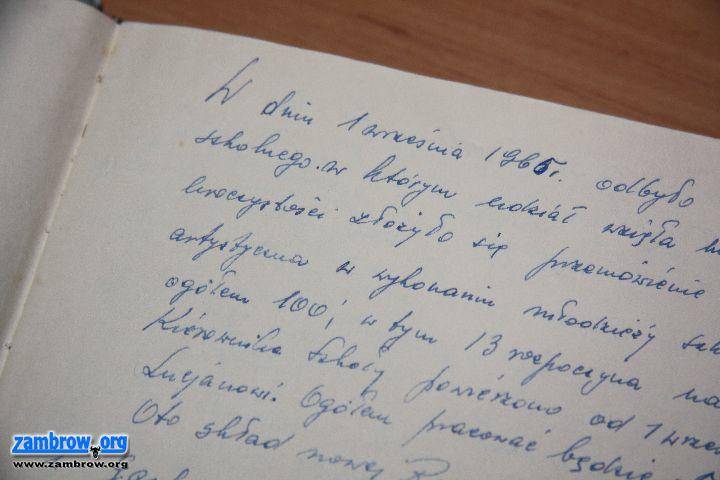 W dniu 1 września 1965r. odbyło
szkolnego. w którym udział wzięła
uroczystości złożyło się przemówienie
artystyczna w wykonaniu młodzieży
ogółem 100, w tym 13 rozpoczyna
Kierownika Szkoły powierzono od 1
Lucjanowi. Ogółem pracować będzie
Oto skład nowej
zambrow.org
www.zambrow.org